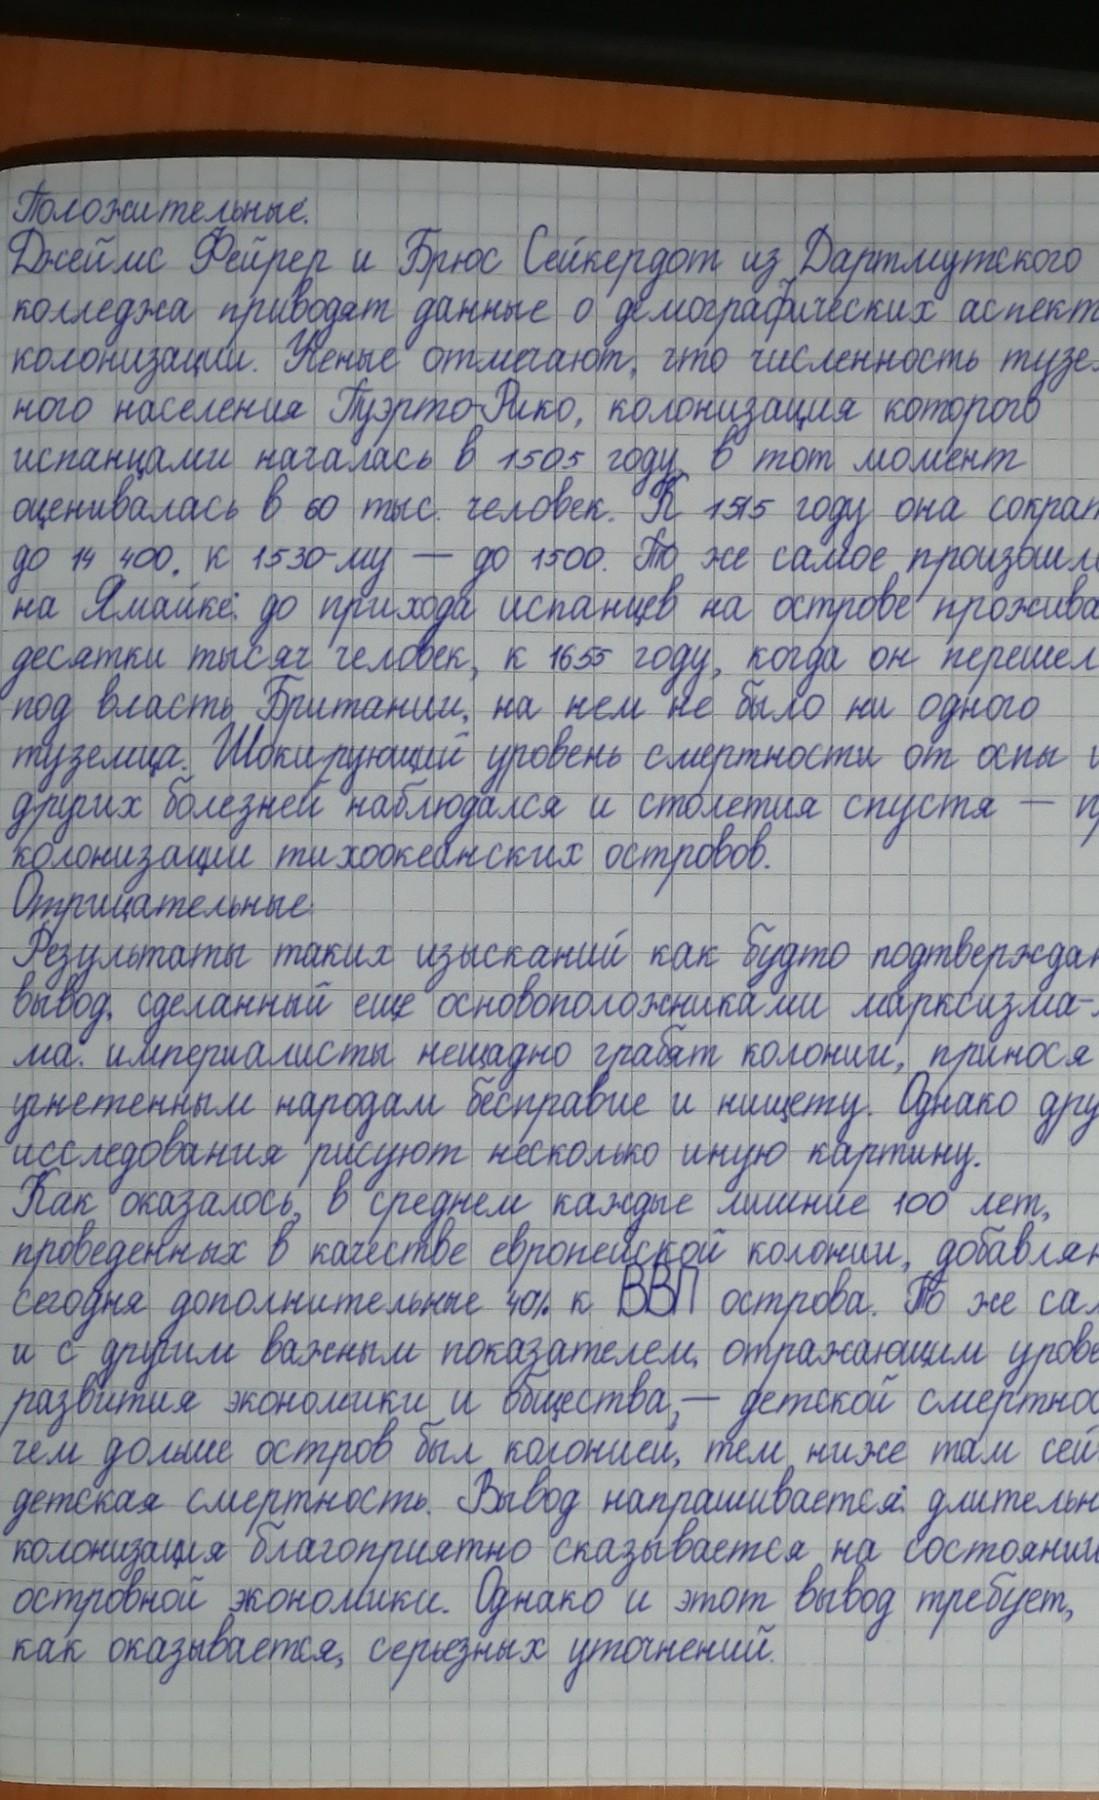 Положительные:
Джеймс Фейрер и Брюс Сейкердот из Дартмутского
колледжа приводят данные о демографических аспект
колонизации. Ученые отмечают, что численность тузе
ного населения Пуэрто-Рико, колонизация которого
испанцами началась в 1505 году, в тот момент
оценивалась в 60 тыс. человек. К 1515 году она сократ
до 14 400, к 1530-му — до 1500. То же самое произошл
на Ямайке: до прихода испанцев на острове прожива
десятки тысяч человек, к 1655 году, когда он перешел
под власть Британии, на нем не было ни одного
туземца. Шокирующий уровень смертности от оспы и
других болезней наблюдался и столетия спустя — п
колонизации тихоокеанских островов.
Отрицательные:
Результаты таких изысканий как будто подтвержда
вывод, сделанный еще основоположниками марксизма-
ма: империалисты нещадно грабят колонии, принося
угнетенным народам бесправие и нищету. Однако дру
исследования рисуют несколько иную картину.
Как оказалось, в среднем каждые лишние 100 лет,
проведенных в качестве европейской колонии, добавля
сегодня дополнительные 40% к ВВП острова. То же са
и с другим важным показателем, отражающим урове
развития экономики и общества, — детской смертнос
чем дольше остров был колонией, тем ниже там сей
детская смертность. Вывод напрашивается: длительн
колонизация благоприятно сказывается на состоянии
островной экономики. Однако и этот вывод требует,
как оказывается, серьезных уточнений.